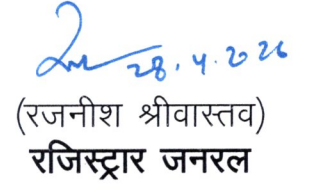 28.4.2026
(रजनीश श्रीवास्तव)
रजिस्ट्रार जनरल